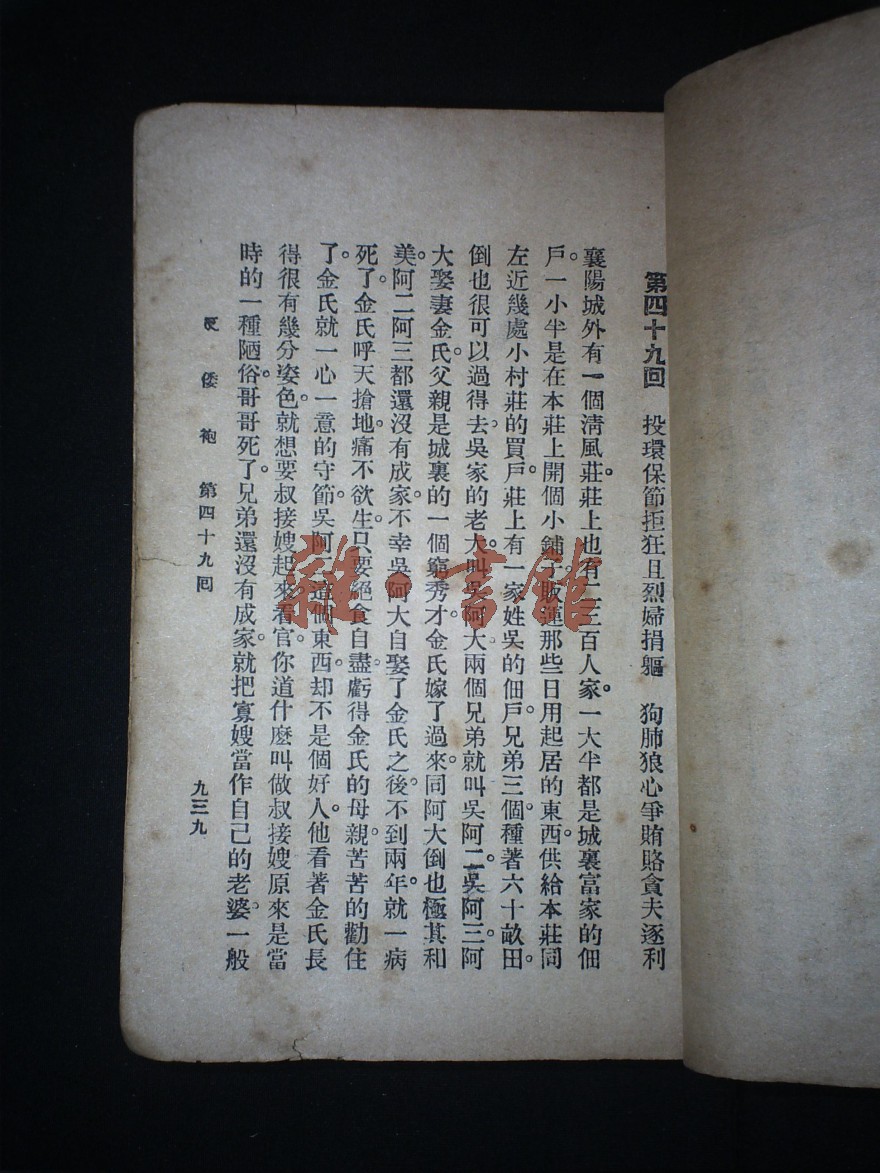 第四十九回　投環保節拒狂且烈婦捐軀　狗肺狼心爭賄賂貪夫逐利
襄陽城外有一個淸風莊。莊上也有二三百人家。一大半都是城裏富家的佃
戶。一小半是在本莊上開個小鋪子。販運那些日用起居的東西。供給本莊同
左近幾處小村莊的買戶。莊上有一家姓吳的佃戶。兄弟三個。種著六十畝田。
倒也很可以過得去。吳家的老大。叫吳阿大。兩個兄弟就叫吳阿二。吳阿三。阿
大娶妻金氏。父親是城裏的一個窮秀才。金氏嫁了過來。同阿大倒也極其和
美。阿二阿三都還沒有成家。不幸吳阿大自娶了金氏之後。不到兩年。就一病
死了。金氏呼天搶地。痛不欲生。只要絕食自盡。虧得金氏的母親苦苦的勸住
了。金氏就一心一意的守節。吳阿二這個東西。却不是個好人。他看著金氏長
得很有幾分姿色。就想要叔接嫂起來。看官。你道什麼叫做叔接嫂。原來是當
時的一種陋俗。哥哥死了。兄弟還沒有成家。就把寡嫂當作自己的老婆。一般
倭袍　第四十九回
九三九
雜·書館